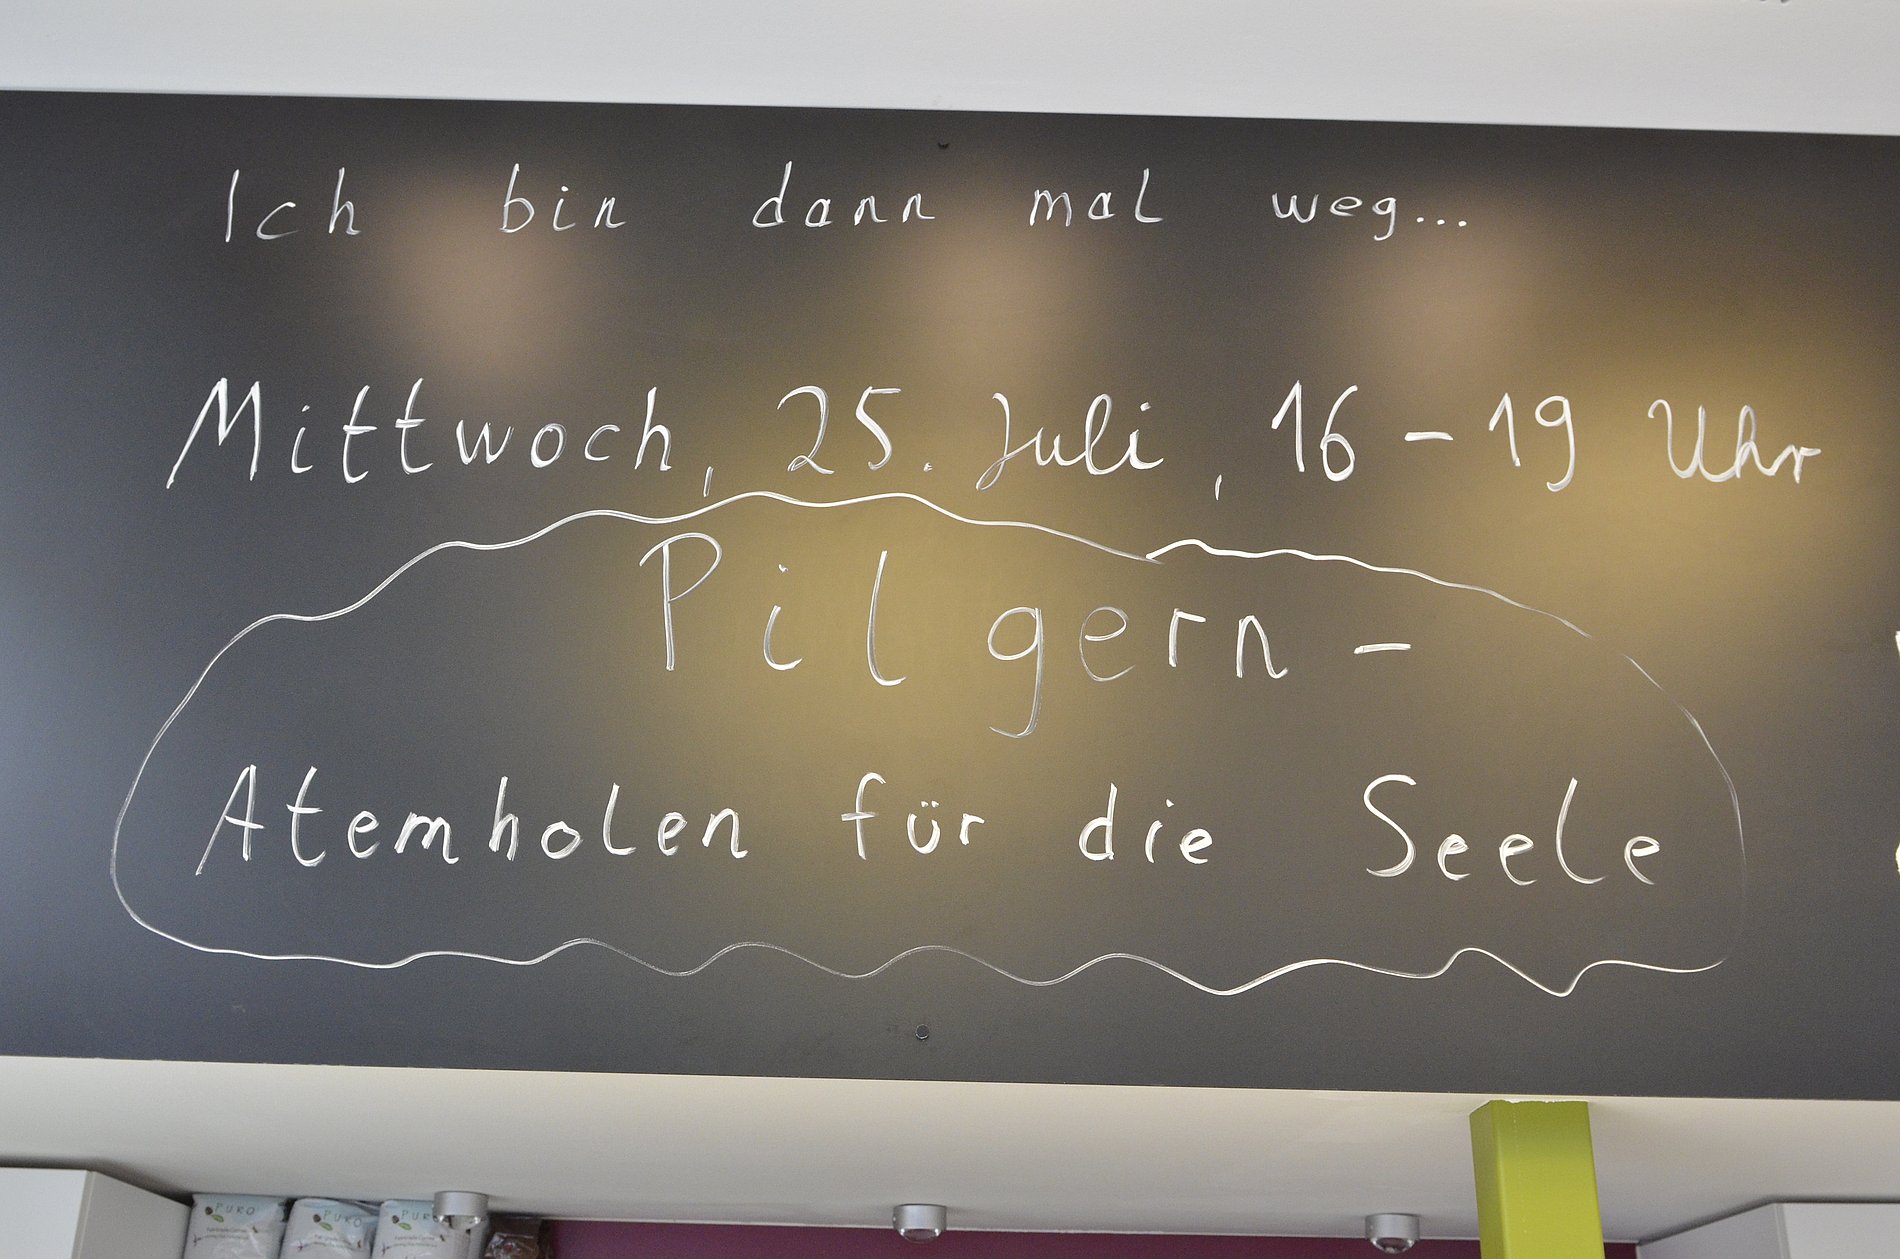 Ich bin dann mal weg...
Mittwoch, 25. Juli, 16 - 19 Uhr
Pilgern -
Atemholen für die Seele
PURO
PURO
PURO